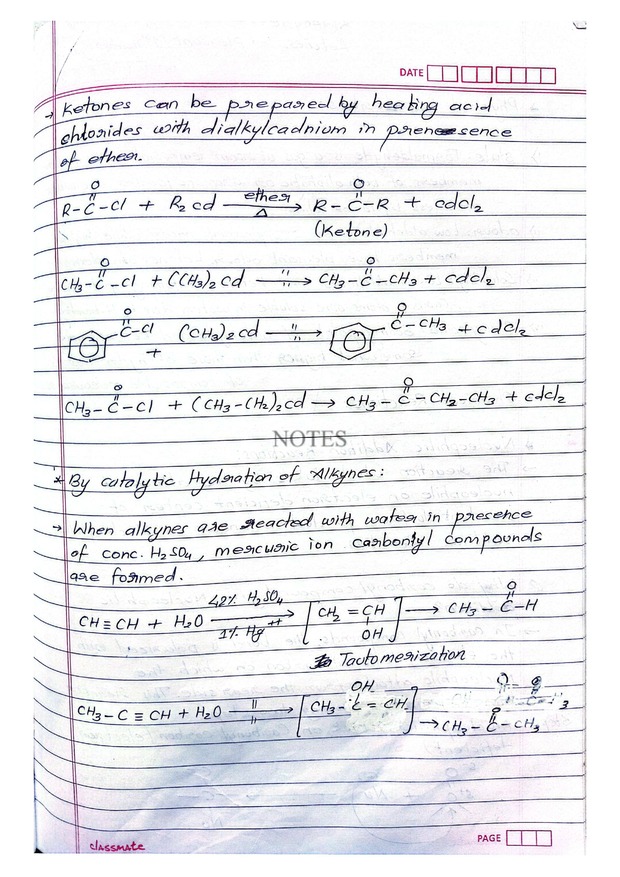 DATE
→ Ketones can be prepared by heating acid
chlorides with dialkylcadnium in prenesence
of ether.
R-C(=O)-Cl + R₂cd —ether/Δ→ R-C(=O)-R + cdcl₂
(Ketone)
CH₃-C(=O)-Cl + (CH₃)₂cd —"/"→ CH₃-C(=O)-CH₃ + cdcl₂
C(=O)-Cl + (CH₃)₂cd —"/"→ C(=O)-CH₃ + cdcl₂
CH₃-C(=O)-Cl + (CH₃-CH₂)₂cd → CH₃-C(=O)-CH₂-CH₃ + cdcl₂
NOTES
* By catalytic Hydration of Alkynes:
→ When alkynes are reacted with water in presence
of conc. H₂SO₄, mercuric ion carbonlyl compounds
are formed.
CH≡CH + H₂O —42% H₂SO₄/1% Hg⁺⁺→ [CH₂=CH-OH] → CH₃-C(=O)-H
Tautomerization
CH₃-C≡CH + H₂O —"/"→ [CH₃-C(OH)=CH]
→ CH₃-C(=O)-CH₃
classmate
PAGE